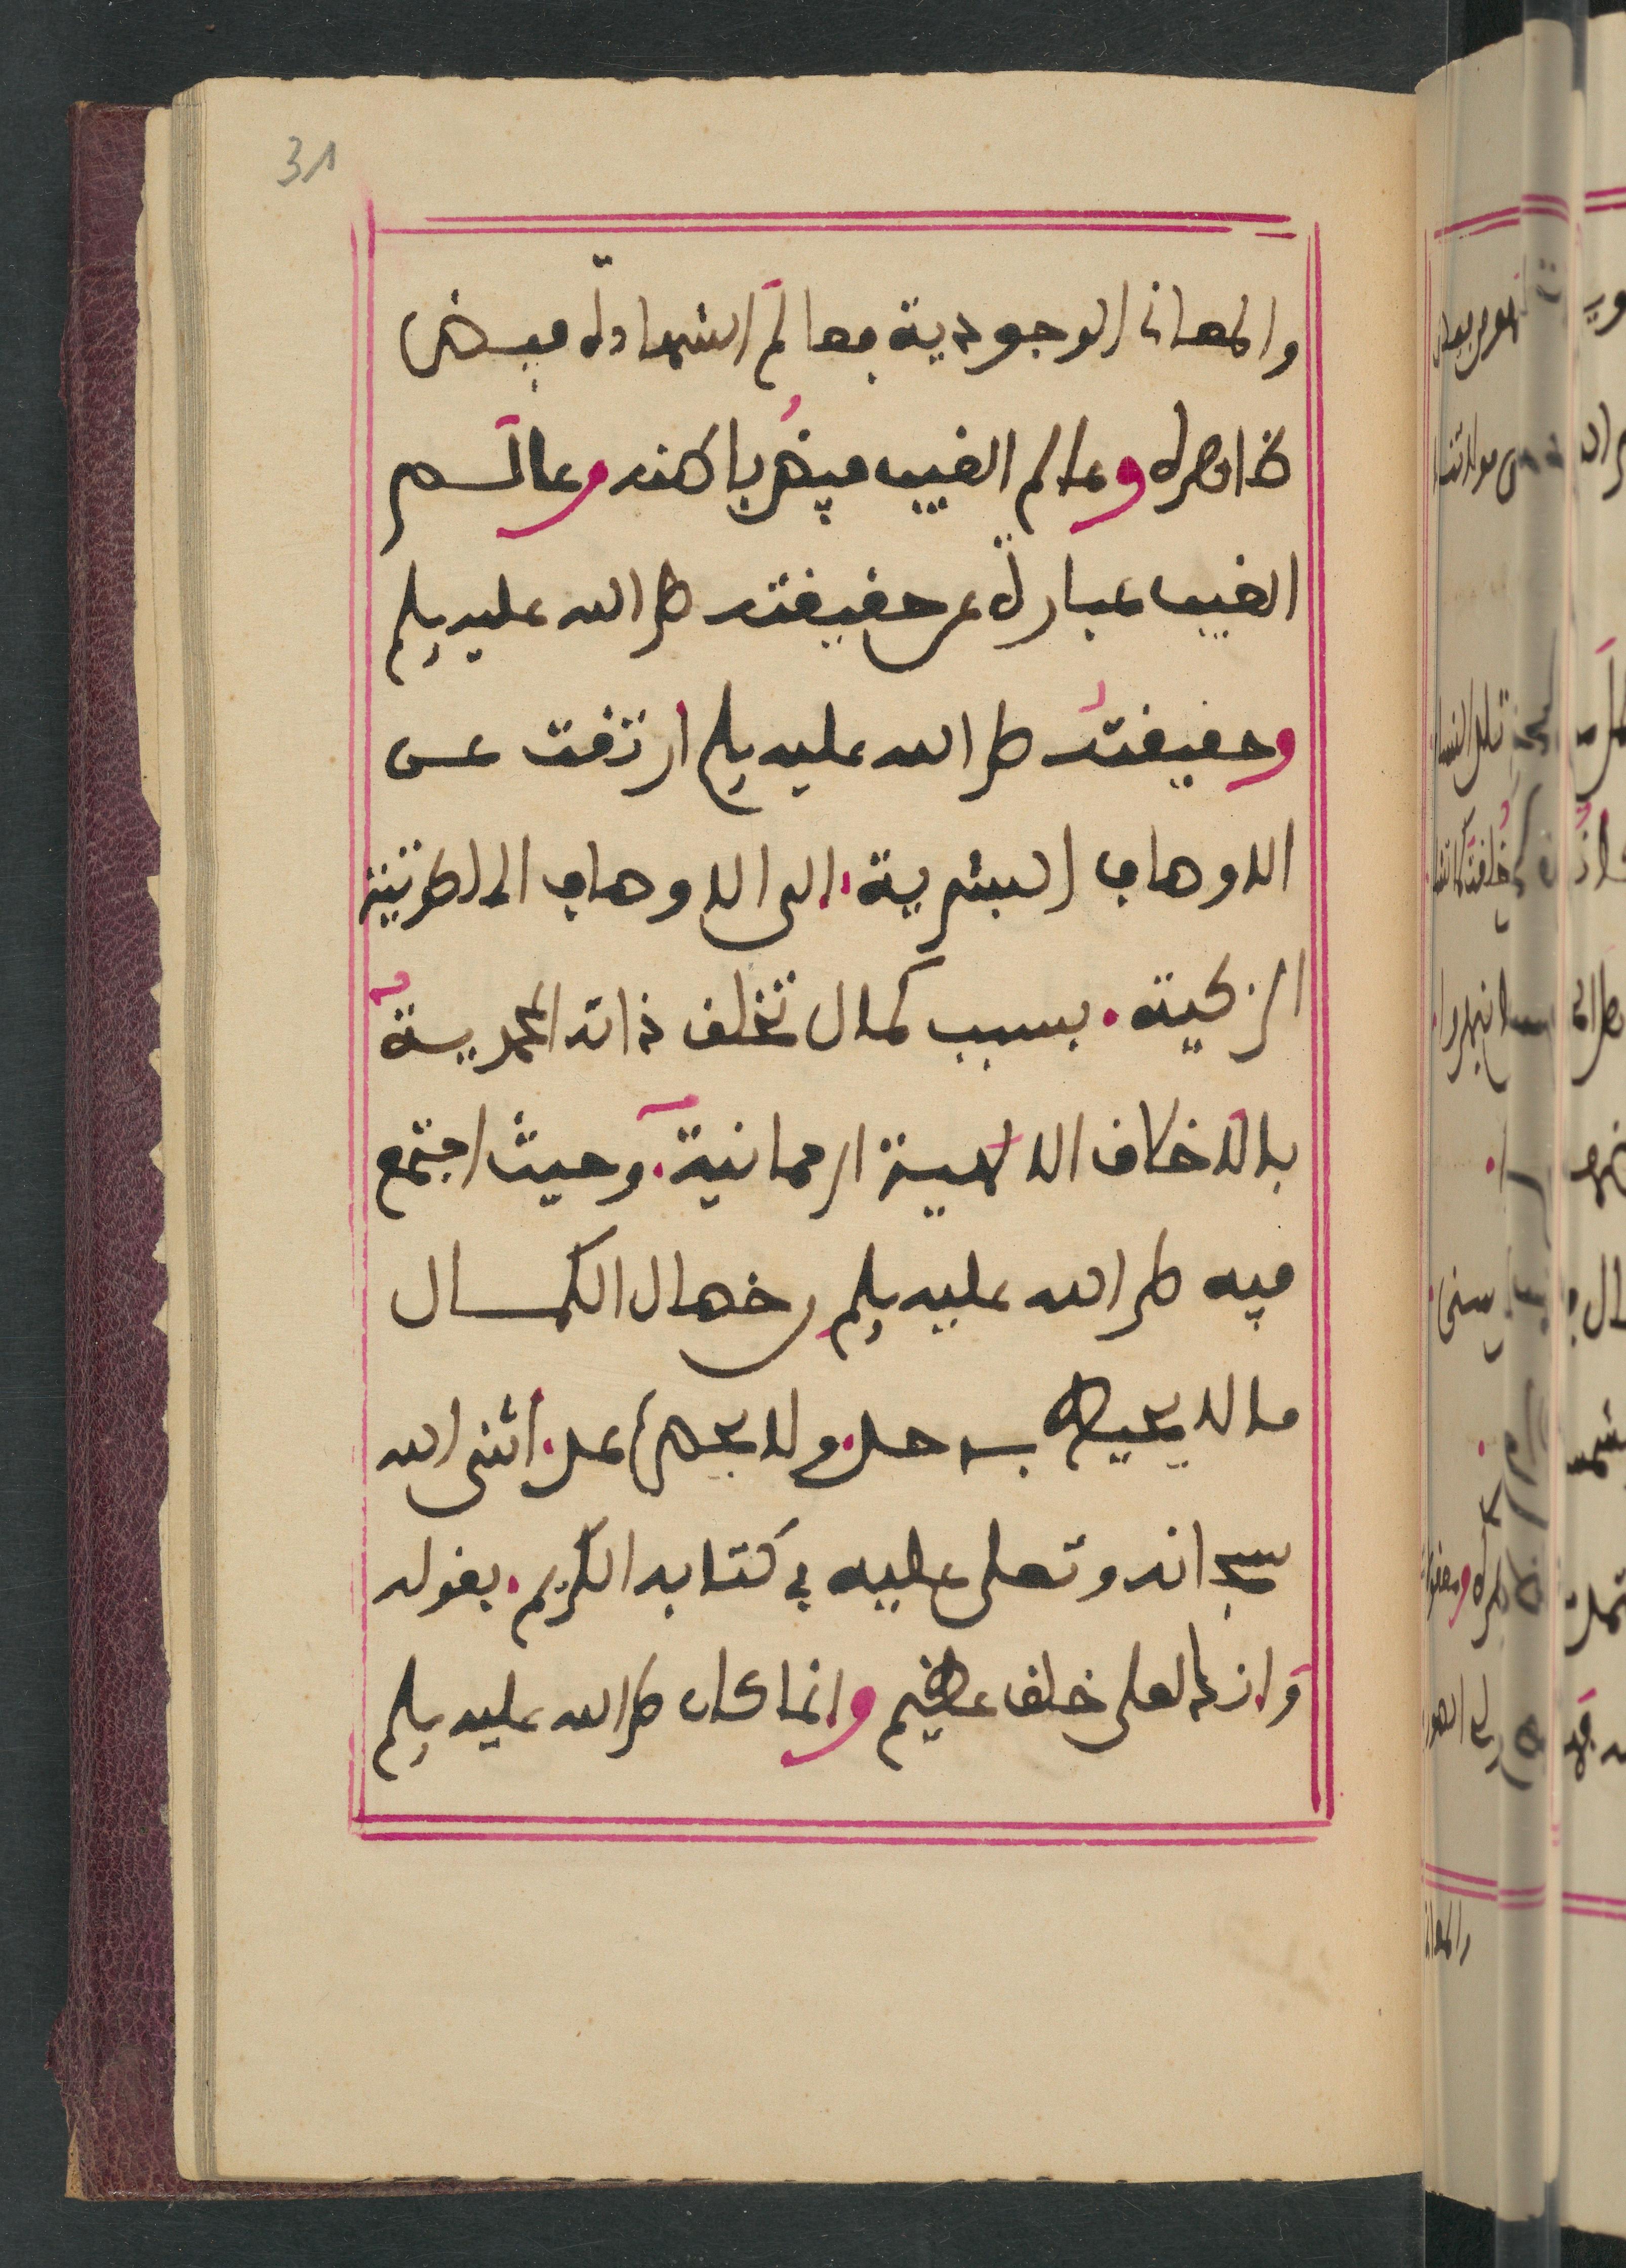 31
والمعاني الوجودية فعالم الشهادة فيض
ظاهره وعالم الغيب فيض باطنه وعالم
الغيب عبارة عن حقيقته صلى الله عليه وسلم
وحقيقته صلى الله عليه وسلم ارتقت عن
الاوصاف البشرية. الى الاوصاف الملكوتية
الزكية. بسبب كمال تخلق ذاته المحمدية
بالاخلاق الالهية الرحمانية. وحيث اجتمع
فيه صلى الله عليه وسلم من خصال الكمال
ما لا يحيط به حد. ولا يحصره عد. أثنى الله
سبحانه وتعلى عليه في كتابه الكريم. بقوله
وانك لعلى خلق عظيم وانما كان صلى الله عليه وسلم